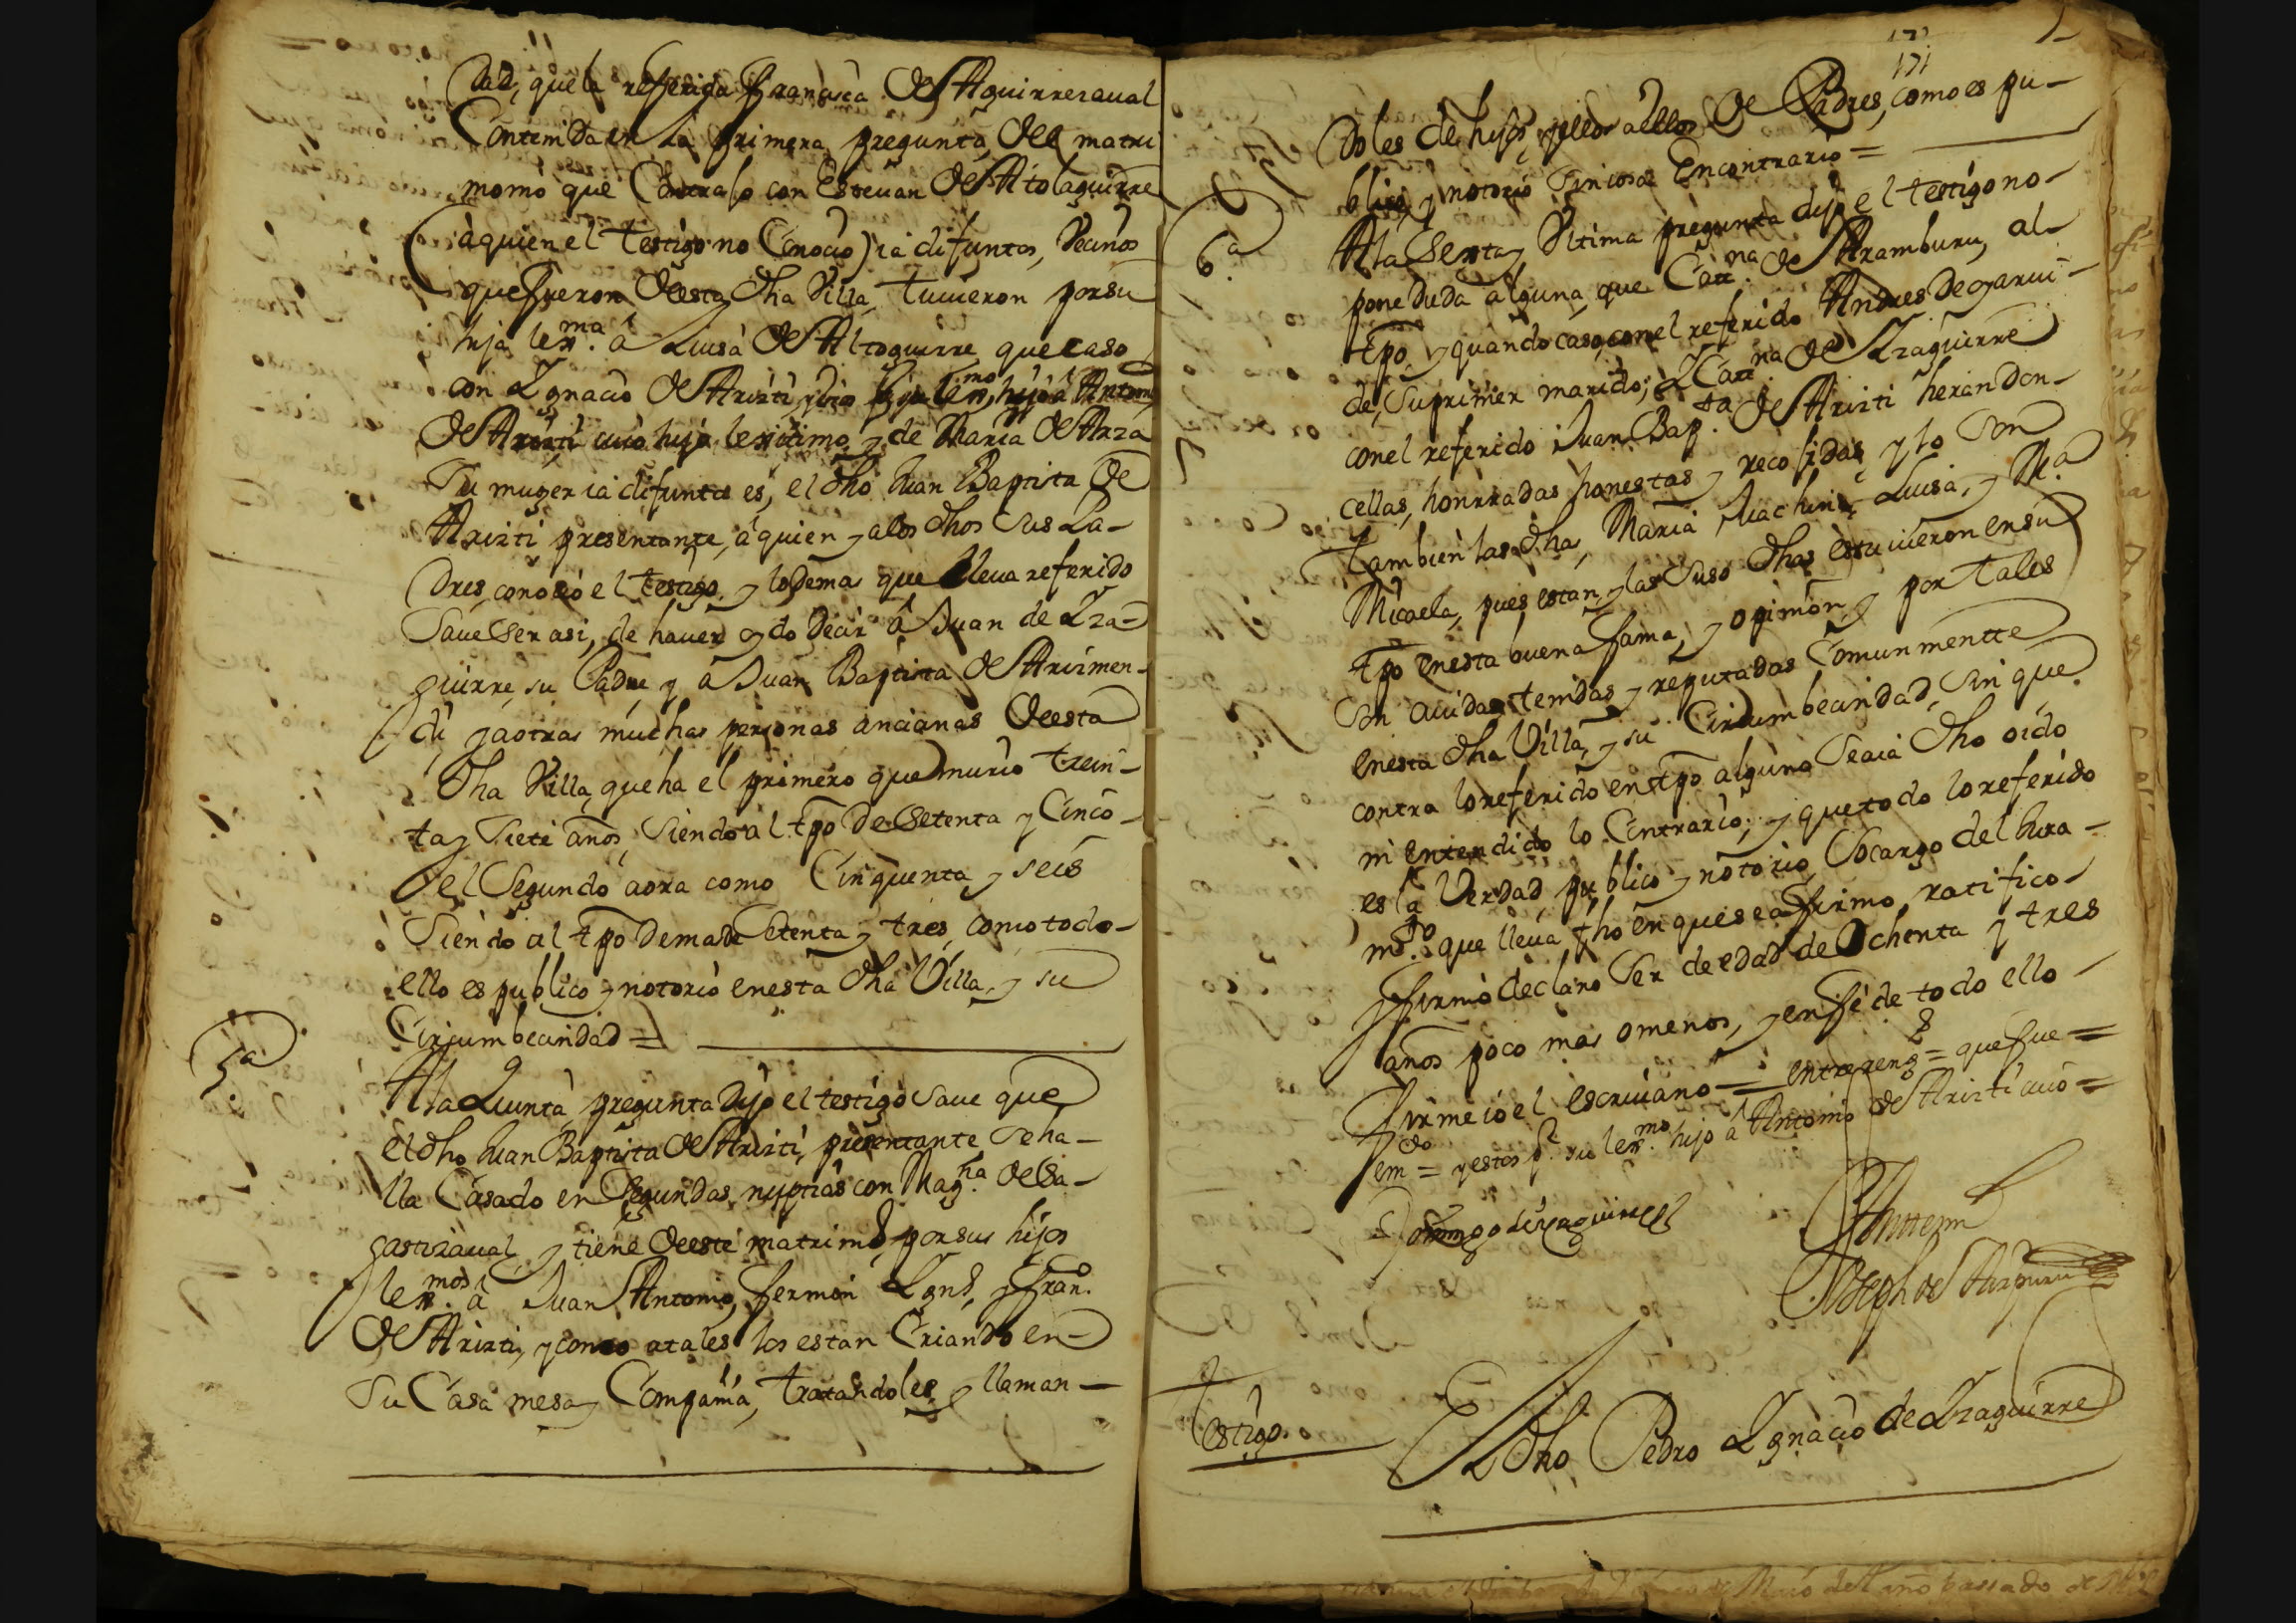 dad, que la referida Francisca de Aguirrezaual
Contenida en la primera pregunta, del matri
monio que Contrajo con Esteuan de Altolaguirre
(à quien el testigo no Conocio) ia difuntos, Vecinos
que fueron de esta dha Villa, tuuieron por su
hija lex.ma à Luisa de Altoguirre que caso
con Ygnacio de Aristi, hijo à Antonio
de Aristi cuio hijo lexitimo y de Maria de Arza
Su muger ia difuntos es, el dho Juan Baptista de
Aristi presentante, à quien y a los dhos Sus Pa-
dres, conocio el testigo, y lo demas que lleua referido
Saue Ser asi, de hauer oydo decir à Juan de Yza-
guirre, su Padre, y à Juan Baptista de Arizmen-
di y a otras muchas personas ancianas de esta
dha Villa, que ha el primero que murio trein-
ta y Siete años, Siendo al tpo de Setenta y Cinco-
y el Segundo aora como Cinquenta y seis
Siendo al tpo de mas de Setenta y tres, como todo-
ello es publico y notorio en esta dha Villa, y su
Circumbecindad =
5.a
A la Quinta pregunta dijo el testigo saue que
el dho Juan Baptista de Aristi, presentante se ha-
lla Casado en Segundas nupcias con Mag.na de Sa-
gastizaual, y tiene de este matrim.o por sus hijos
lex.mos à Juan Antonio, fermin Ygn.o, y fran.co
de Aristi, y como a tales los estan Criando en
Su Casa mesa y Compañia, tratandoles y llaman-
171
doles de hijos, y ellos a ellos de Padres, como es pu-
blico, y notorio Sin cosa En contrario =
6.a
A la Sexta y Vltima pregunta dijo el testigo no-
pone duda alguna, que Cat.na de Aramburu, al-
tpo y quando caso, con el referido Andres de garui-
de, Su primer marido; Y Cat.na de Yzaguirre
con el referido Juan Bap.ta de Aristi heran don-
cellas, honrradas honestas y recojidas, y lo Son
tambien las dhas, Maria Juachina, Luisa, y M.a
Micaela, pues estan y las Suso dhas estuuieron en su
tpo en esta buena fama, y opinion y por tales
Son auidas tenidas y reputadas Comunmentte
en esta dha Villa, y su Circumbecindad, Sin que
contra lo referido en tpo alguno Seaia dho oido
ni entendido lo Contrario; y que todo lo referido
es la Verdad, publico y notorio, Socargo del Jura-
m.to que lleua fho en que se afirmo, ratifico-
y firmo declaro Ser de edad de Ochenta y tres
años poco mas o menos, y en fe de todo ello-
firme io el escriuano = entre reng.s = que fue =
em.do = y estos p.r su lex.mo hijo à Antonio de Aristi cuio =
Domingo de Yzaguirre
Antemi
Joseph de Aizpuru
Testigo.
El dho Pedro Ygnacio de Yzaguirre